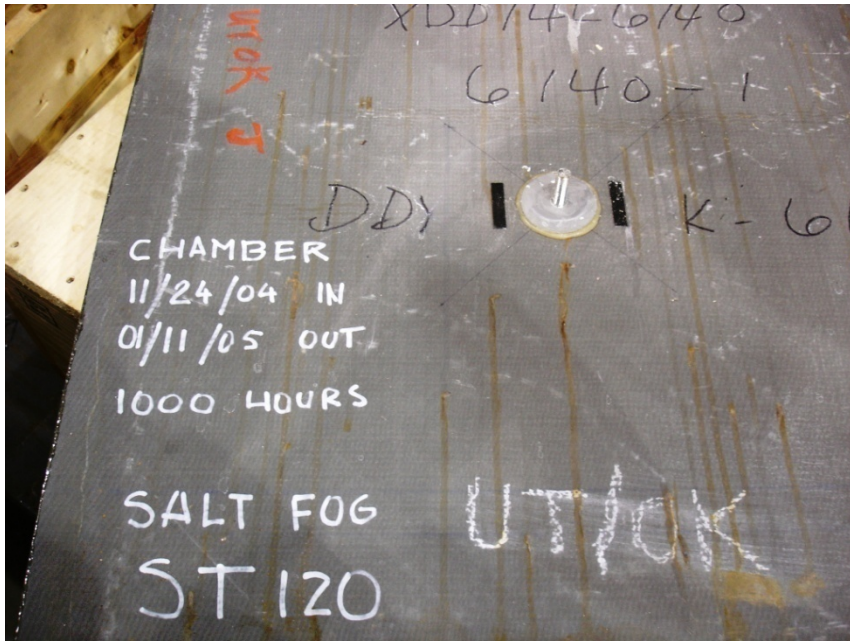 UTOK J
XDD14L-6140
6140-1
DDY
K-61
CHAMBER
11/24/04 IN
01/11/05 OUT
1000 HOURS
SALT FOG
ST120
UT/OK